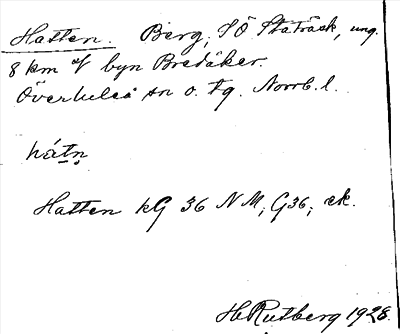 Hatten. Berg, SÖ Staträsk, ung.
8 km af byn Bredåker.
Överluleå sn o. tg. Norrb. l.
hátn̥
Hatten kG 36 NM, G36, ek.
H Rutberg 1928.